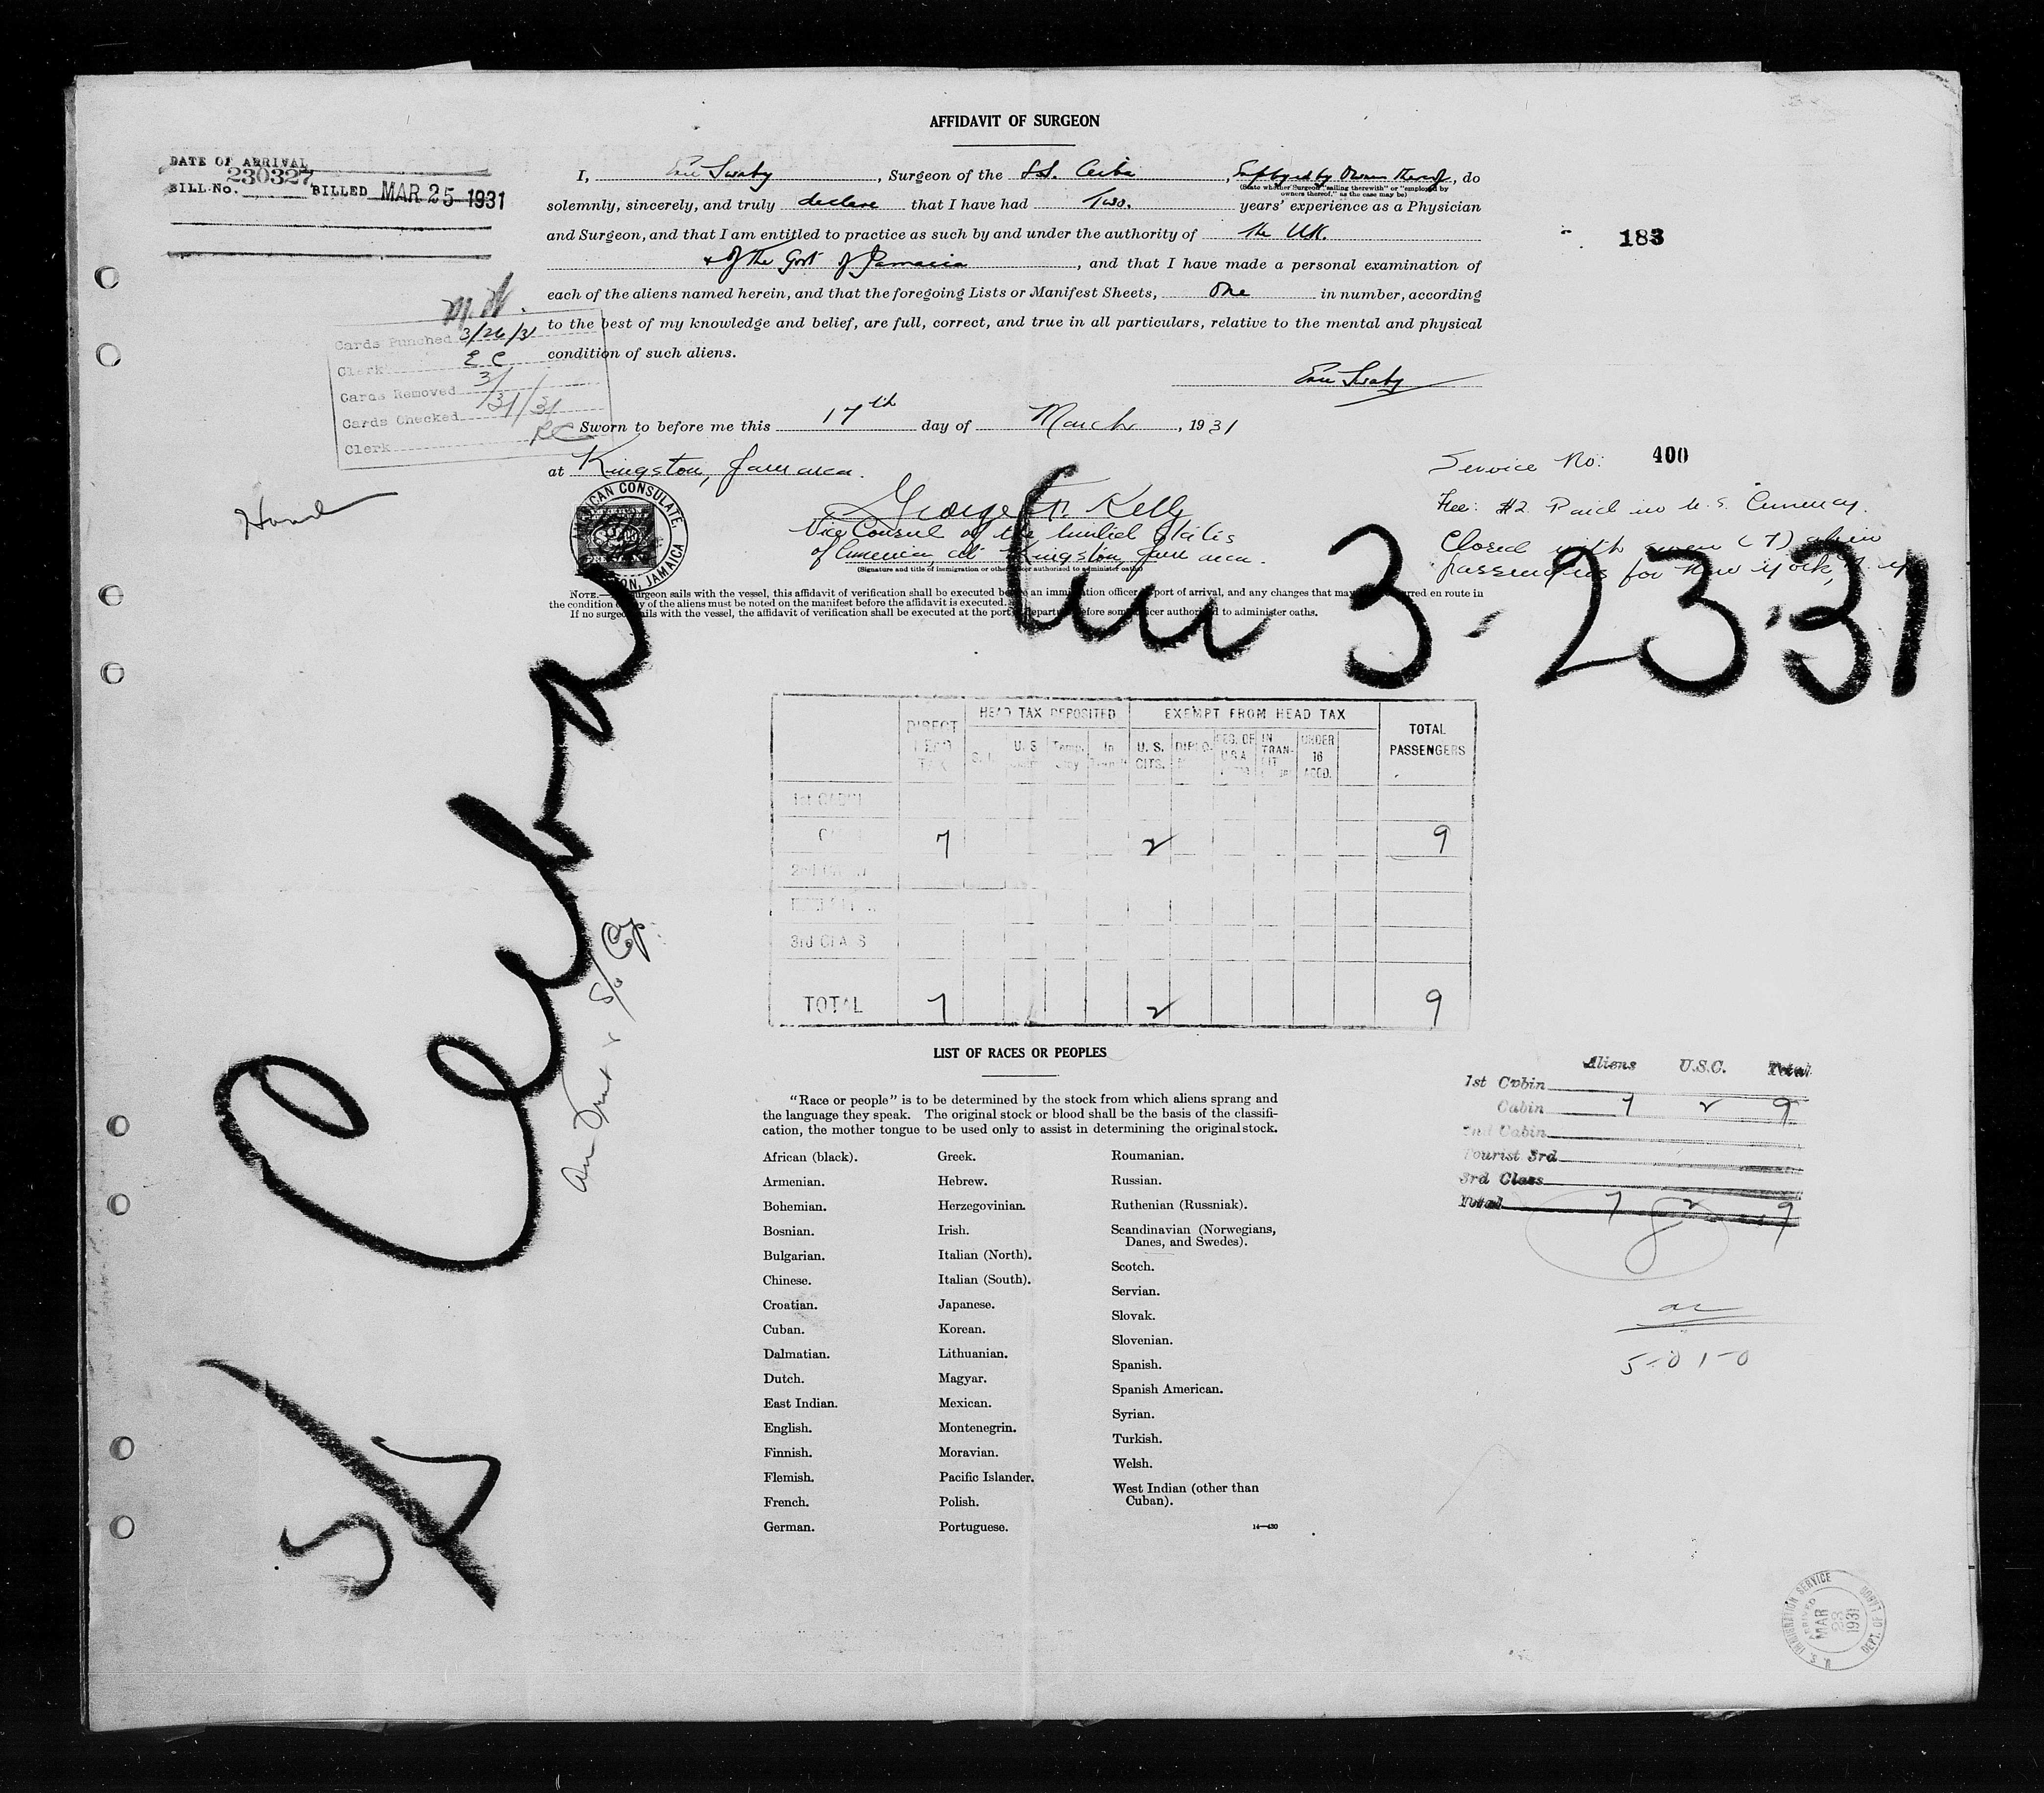 AFFIDAVIT OF SURGEON
DATE OF ARRIVAL
230327
BILL No. BILLED MAR 25 1931
183
I, Eric Swaby, Surgeon of the S.S. Ceiba, Employed by Owners thereof, do
(State whether Surgeon "sailing therewith" or "employed by
owners thereof," as the case may be)
solemnly, sincerely, and truly declare that I have had Two. years' experience as a Physician
and Surgeon, and that I am entitled to practice as such by and under the authority of the UK.
& of the Govt of Jamaica, and that I have made a personal examination of
each of the aliens named herein, and that the foregoing Lists or Manifest Sheets, One in number, according
to the best of my knowledge and belief, are full, correct, and true in all particulars, relative to the mental and physical
condition of such aliens.
Eric Swaby
Cards Punched 3/26/31
Clerk E C
Cards Removed 3/
Cards Checked 31/31
Clerk RC
Sworn to before me this 17th day of March, 1931
at Kingston, Jamaica.
AMERICAN CONSULATE
KINGSTON, JAMAICA
George Kelly
Vice Consul of the United States
of America, at Kingston, Jamaica.
(Signature and title of immigration or other officer authorized to administer oaths)
Service No: 400
Fee: $2 Paid in U.S. Currency.
Closed with seven (7) alien
passengers for New York, N.Y.
NOTE.—If surgeon sails with the vessel, this affidavit of verification shall be executed before an immigration officer at port of arrival, and any changes that may have occurred en route in
the condition of any of the aliens must be noted on the manifest before the affidavit is executed.
If no surgeon sails with the vessel, the affidavit of verification shall be executed at the port of departure before some officer authorized to administer oaths.
3-23-31
Ceiba
DIRECT HEAD TAX
HEAD TAX DEPOSITED
EXEMPT FROM HEAD TAX
TOTAL PASSENGERS
U. S. CITS.
IN TRANSIT
UNDER 16 ACCD.
1st CABIN
CABIN 7 2 9
2nd CABIN
3rd CLASS
TOTAL 7 2 9
LIST OF RACES OR PEOPLES
"Race or people" is to be determined by the stock from which aliens sprang and
the language they speak. The original stock or blood shall be the basis of the classifi-
cation, the mother tongue to be used only to assist in determining the original stock.
African (black).
Armenian.
Bohemian.
Bosnian.
Bulgarian.
Chinese.
Croatian.
Cuban.
Dalmatian.
Dutch.
East Indian.
English.
Finnish.
Flemish.
French.
German.
Greek.
Hebrew.
Herzegovinian.
Irish.
Italian (North).
Italian (South).
Japanese.
Korean.
Lithuanian.
Magyar.
Mexican.
Montenegrin.
Moravian.
Pacific Islander.
Polish.
Portuguese.
Roumanian.
Russian.
Ruthenian (Russniak).
Scandinavian (Norwegians,
Danes, and Swedes).
Scotch.
Servian.
Slovak.
Slovenian.
Spanish.
Spanish American.
Syrian.
Turkish.
Welsh.
West Indian (other than
Cuban).
14—430
Aliens U.S.C. Total
1st Cabin
Cabin 7 2 9
2nd Cabin
Tourist 3rd
3rd Class
Total 7 2 9
5-0 1-0
U. S. IMMIGRATION SERVICE
ARRIVED
MAR
23
1931
DEPT. OF LABOR